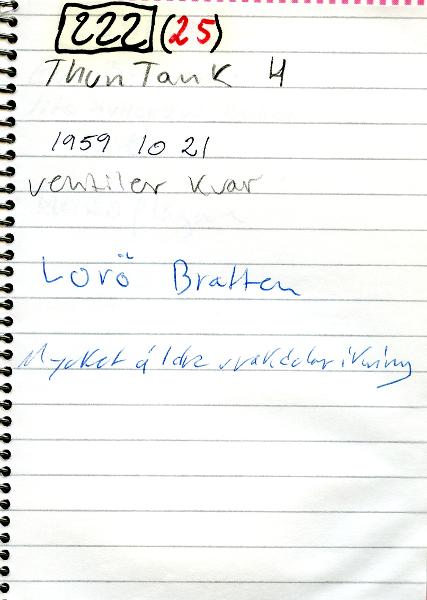 222 (25)
Thun Tank 4
1959 10 21
ventiler kvar
Lorö Bratten
Mycket äldre vrakdelar ikring